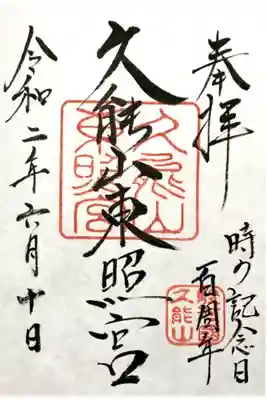 奉拝
時の記念日
百周年
久能山東照宮
令和二年六月十日
久能山
東照宮
久能山